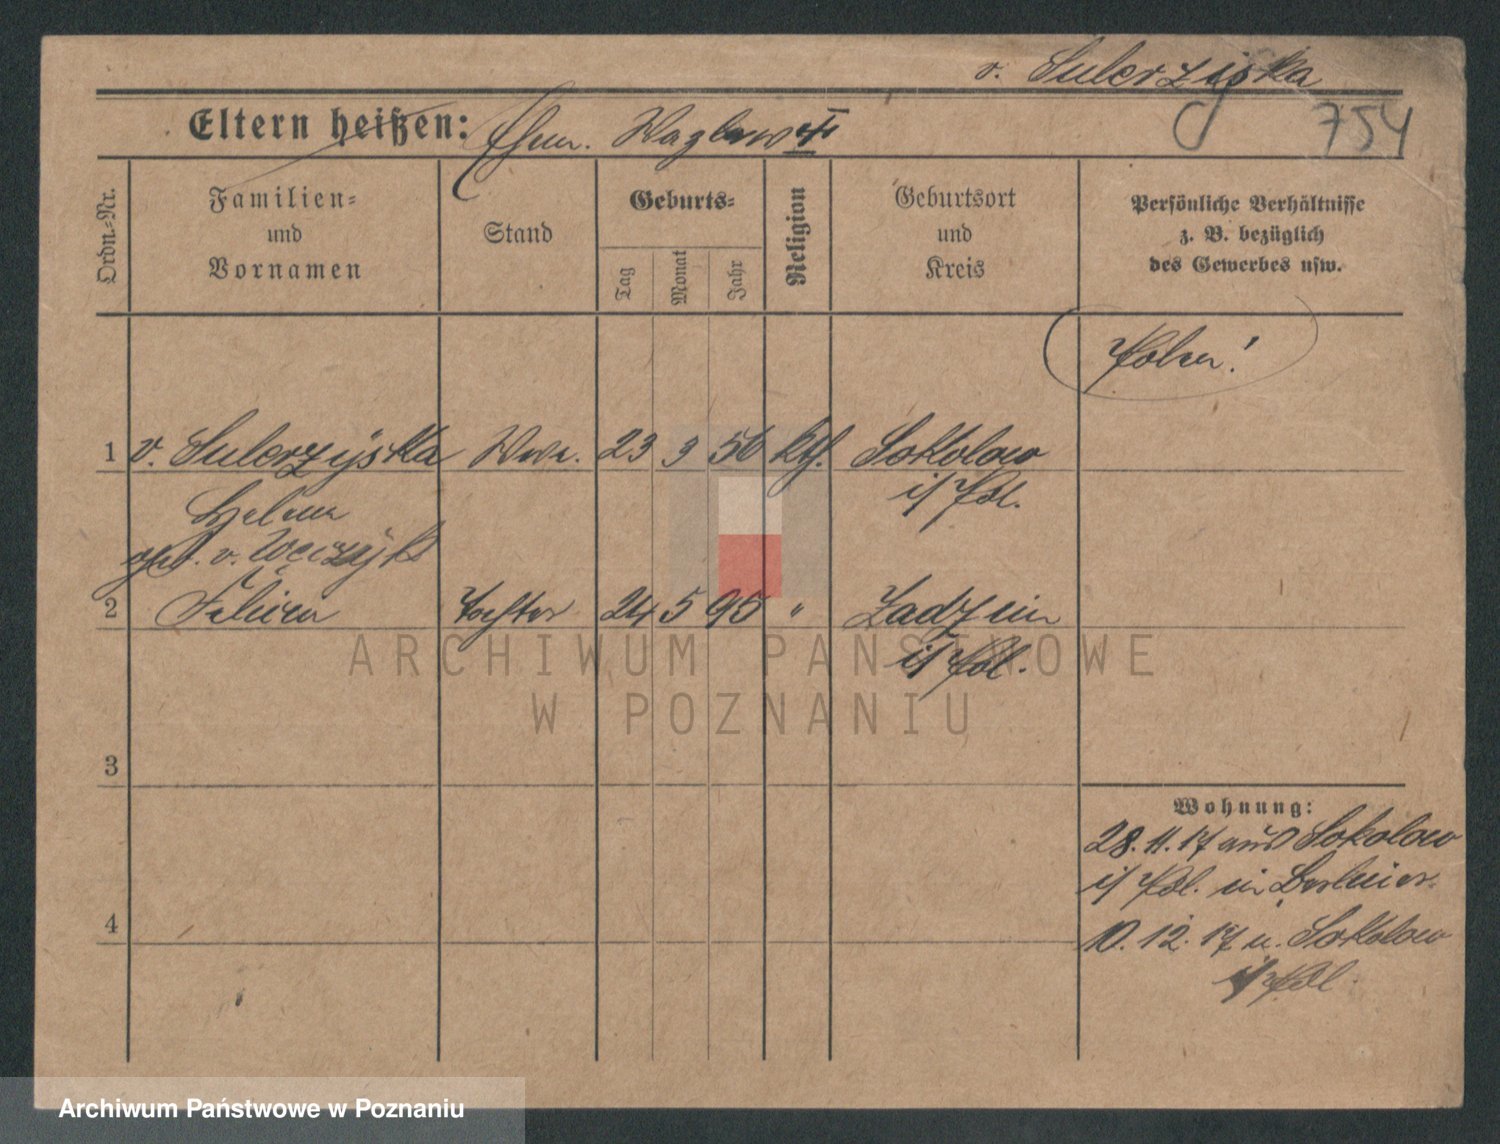 v. Sulerzyska
Eltern heißen: Ehem. Waglaw †
754
Ordn.-Nr.
Familien-
und
Vornamen
Stand
Geburts-
Tag
Monat
Jahr
Religion
Geburtsort
und
Kreis
Persönliche Verhältnisse
z. B. bezüglich
des Gewerbes usw.
Polen!
1 v. Sulerzyska Wwe. 23 3 56 kth. Sokolow
i/ Pol.
Helene
geb. v.
2 Felicia Tochter 24 5 95 " Zadzim
i/ Pol.
3
4
Wohnung:
28. 11. 17 aus Sokolow
i/ Pol. in
10. 12. 17 n. Sokolow
i/ Pol.
ARCHIWUM PAŃSTWOWE
W POZNANIU
Archiwum Państwowe w Poznaniu